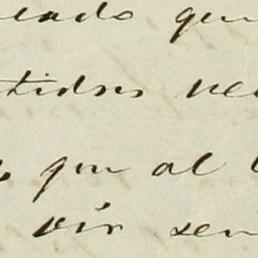 eado que
tidos ve
que al
vir sen